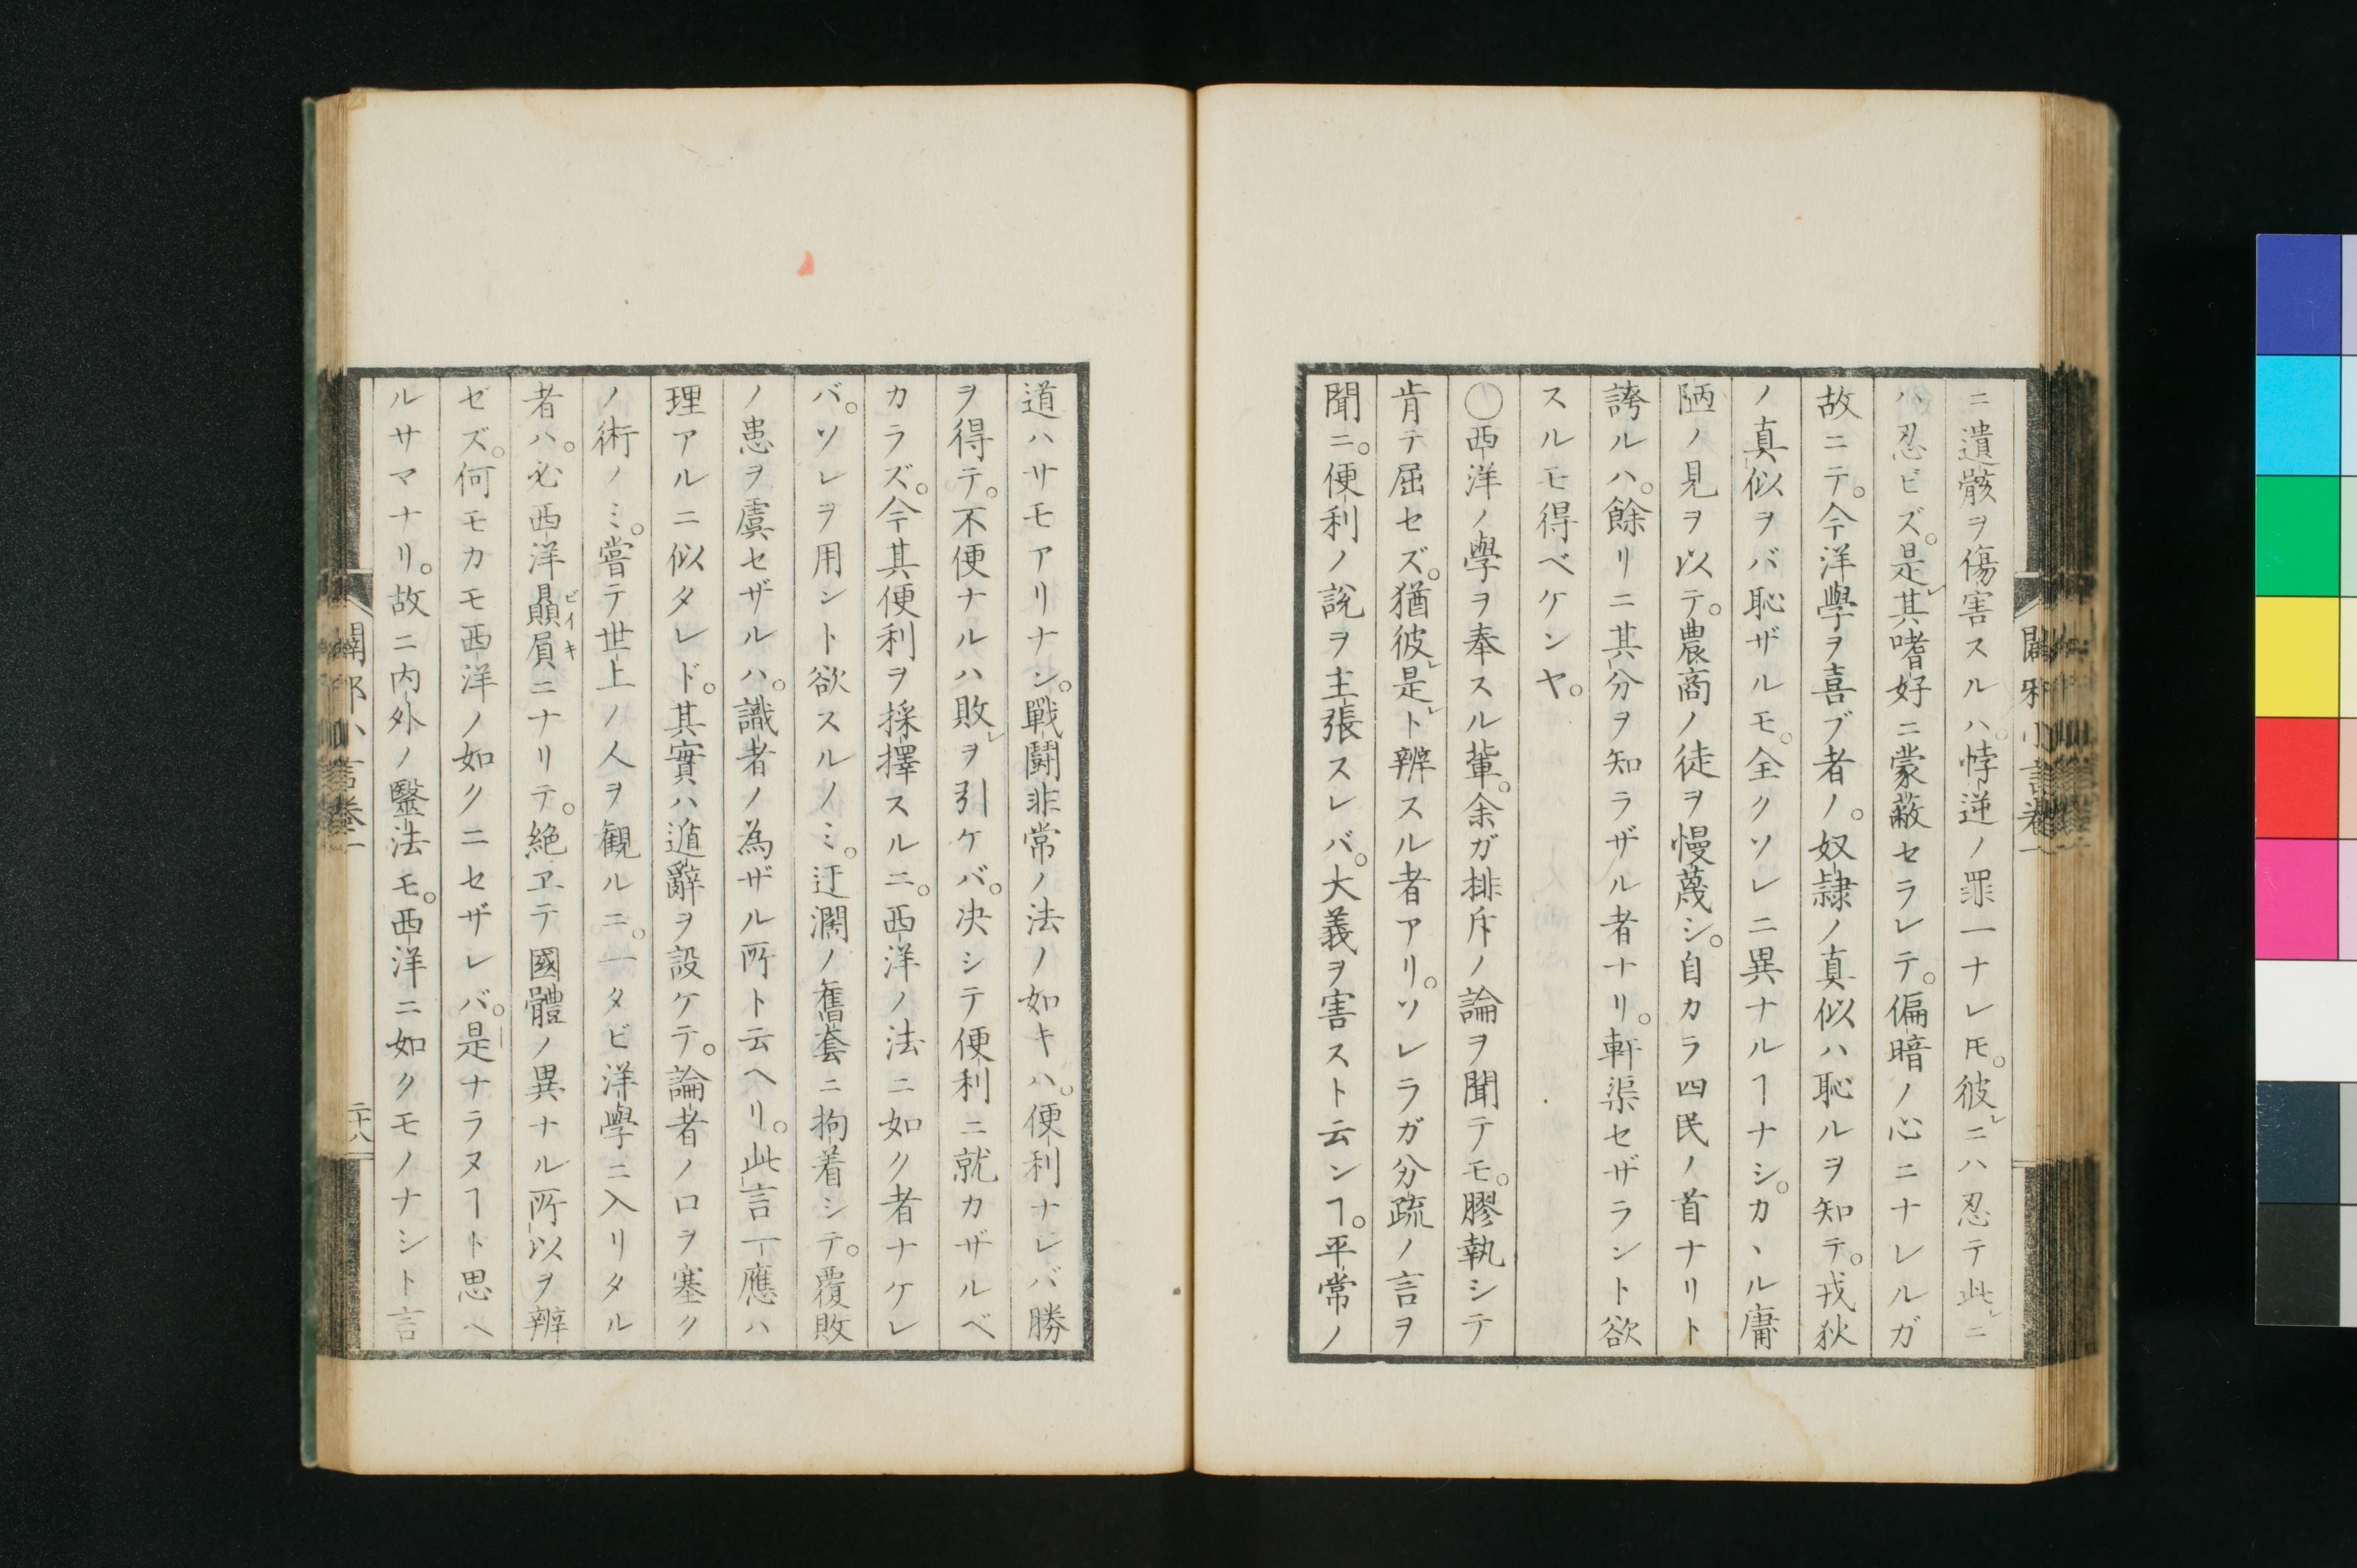 ニ遺骸ヲ傷害スルハ。悖逆ノ罪一ナレ𪜈。彼レニハ忍テ此レニ
ハ忍ビズ。是レ其嗜好ニ蒙蔽セラレテ。偏暗ノ心ニナレルガ
故ニテ。今洋學ヲ喜ブ者ノ。奴隷ノ真似ハ恥ルヲ知テ。戎狄
ノ真似ヲバ恥ザルモ。全クソレニ異ナルヿナシ。カヽル庸
陋ノ見ヲ以テ。農商ノ徒ヲ慢蔑シ。自カラ四民ノ首ナリト
誇ルハ。餘リニ其分ヲ知ラザル者ナリ。軒渠セザラント欲
スルモ得ベケンヤ。
○西洋ノ學ヲ奉スル輩。余ガ排斥ノ論ヲ聞テモ。膠執シテ
肯テ屈セズ。猶彼レ是レト辨スル者アリ。ソレラガ分疏ノ言ヲ
聞ニ。便利ノ說ヲ主張スレバ。大義ヲ害スト云ンヿ。平常ノ
闢邪小言卷一
道ハサモアリナン。戰鬪非常ノ法ノ如キハ。便利ナレバ勝
ヲ得テ。不便ナルハ敗レヲ引ケバ。决シテ便利ニ就カザルベ
カラズ。今其便利ヲ採擇スルニ。西洋ノ法ニ如ク者ナケレ
バ。ソレヲ用ント欲スルノミ。迂濶ノ舊套ニ拘着シテ。覆敗
ノ患ヲ虞セザルハ。識者ノ為ザル所ト云ヘリ。此言一應ハ
理アルニ似タレド。其實ハ遁辭ヲ設ケテ。論者ノ口ヲ塞ク
ノ術ノミ。嘗テ世上ノ人ヲ観ルニ。一タビ洋學ニ入リタル
者ハ。必西洋贔屓ビイキニナリテ。絶ヱテ國體ノ異ナル所以ヲ辨
ゼズ。何モカモ西洋ノ如クニセザレバ。是ナラヌヿト思ヘ
ルサマナリ。故ニ内外ノ醫法モ。西洋ニ如クモノナシト言
闢邪小言卷一
二十八